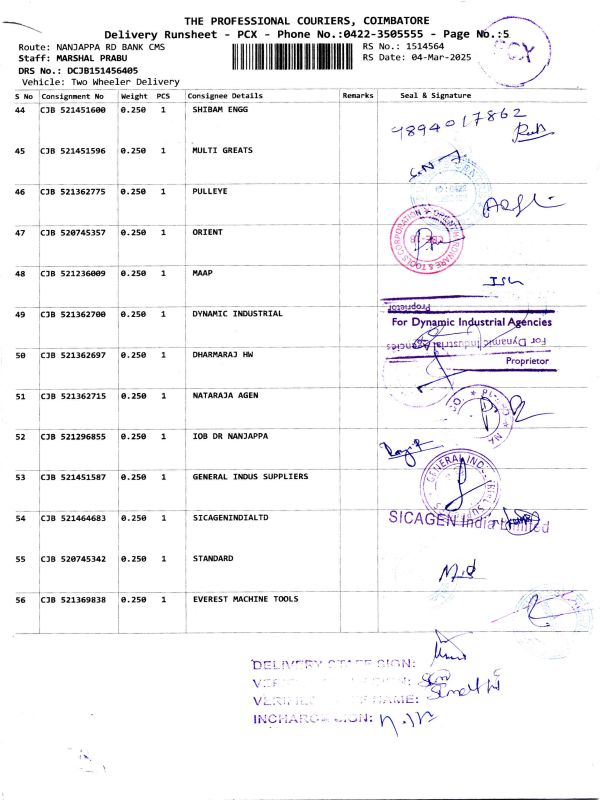 THE PROFESSIONAL COURIERS, COIMBATORE
Delivery Runsheet - PCX - Phone No.:0422-3505555 - Page No.:5
PCX
Route: NANJAPPA RD BANK CMS
RS No.: 1514564
Staff: MARSHAL PRABU
RS Date: 04-Mar-2025
DRS No.: DCJB151456405
Vehicle: Two Wheeler Delivery
S No Consignment No Weight PCS Consignee Details Remarks Seal & Signature
44 CJB 521451600 0.250 1 SHIBAM ENGG 9894017862
45 CJB 521451596 0.250 1 MULTI GREATS
46 CJB 521362775 0.250 1 PULLEYE
47 CJB 520745357 0.250 1 ORIENT
48 CJB 521236009 0.250 1 MAAP
49 CJB 521362700 0.250 1 DYNAMIC INDUSTRIAL
Proprietor
For Dynamic Industrial Agencies
For Dynamic Industrial Agencies
50 CJB 521362697 0.250 1 DHARMARAJ HW
Proprietor
51 CJB 521362715 0.250 1 NATARAJA AGEN
52 CJB 521296855 0.250 1 IOB DR NANJAPPA
53 CJB 521451587 0.250 1 GENERAL INDUS SUPPLIERS
54 CJB 521464683 0.250 1 SICAGENINDIALTD SICAGEN India Limited
55 CJB 520745342 0.250 1 STANDARD
56 CJB 521369838 0.250 1 EVEREST MACHINE TOOLS
DELIVERY STAFF SIGN:
SIGN:
VERIFIED NAME:
INCHARGE SIGN: